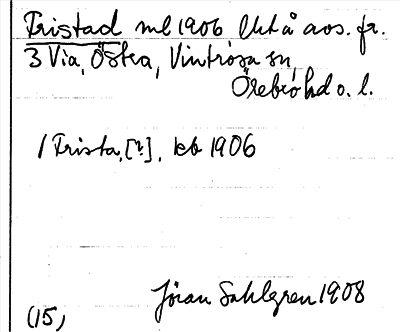 Fristad ml 1906 Utt å avs. fr.
3 Via, Östra, Vintrosa sn,
Örebro hd o. l.
/ Frista, [?], kb 1906
Jöran Sahlgren 1908
(15)